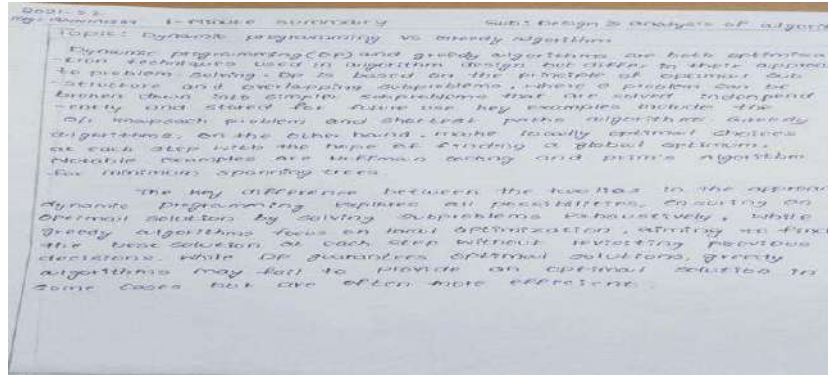 1-minute summary Sub: Design & analysis of algorit
Topic: Dynamic programming vs Greedy algorithm
Dynamic programming (DP) and greedy algorithms are both optimiza
-tion techniques used in algorithm design but differ in their approa
to problem-solving. DP is based on the principle of optimal sub
-structure and overlapping subproblems, where a problem can be
broken down into simpler subproblems that are solved independ
-ently and stored for future use key examples include the
0/1 knapsack problem and shortest paths algorithms. Greedy
algorithms, on the other hand, make locally optimal choices
at each step with the hope of finding a global optimum.
Notable examples are Huffman coding and prim's algorithm
for minimum spanning trees.
The key difference between the two lies in the approac
dynamic programming explores all possibilities, ensuring an
optimal solution by solving subproblems exhaustively, while
greedy algorithms focus on local optimization, aiming to find
the best solution at each step without revisiting previous
decisions. while DP guarantees optimal solutions, greedy
algorithms may fail to provide an optimal solution in
some cases but are often more efficient.